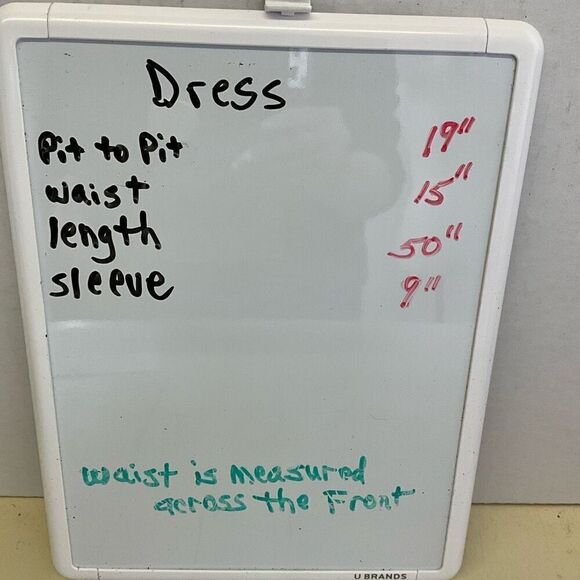 Dress
Pit to Pit 19"
waist 15"
length 50"
sleeve 9"
waist is measured
across the Front
U BRANDS